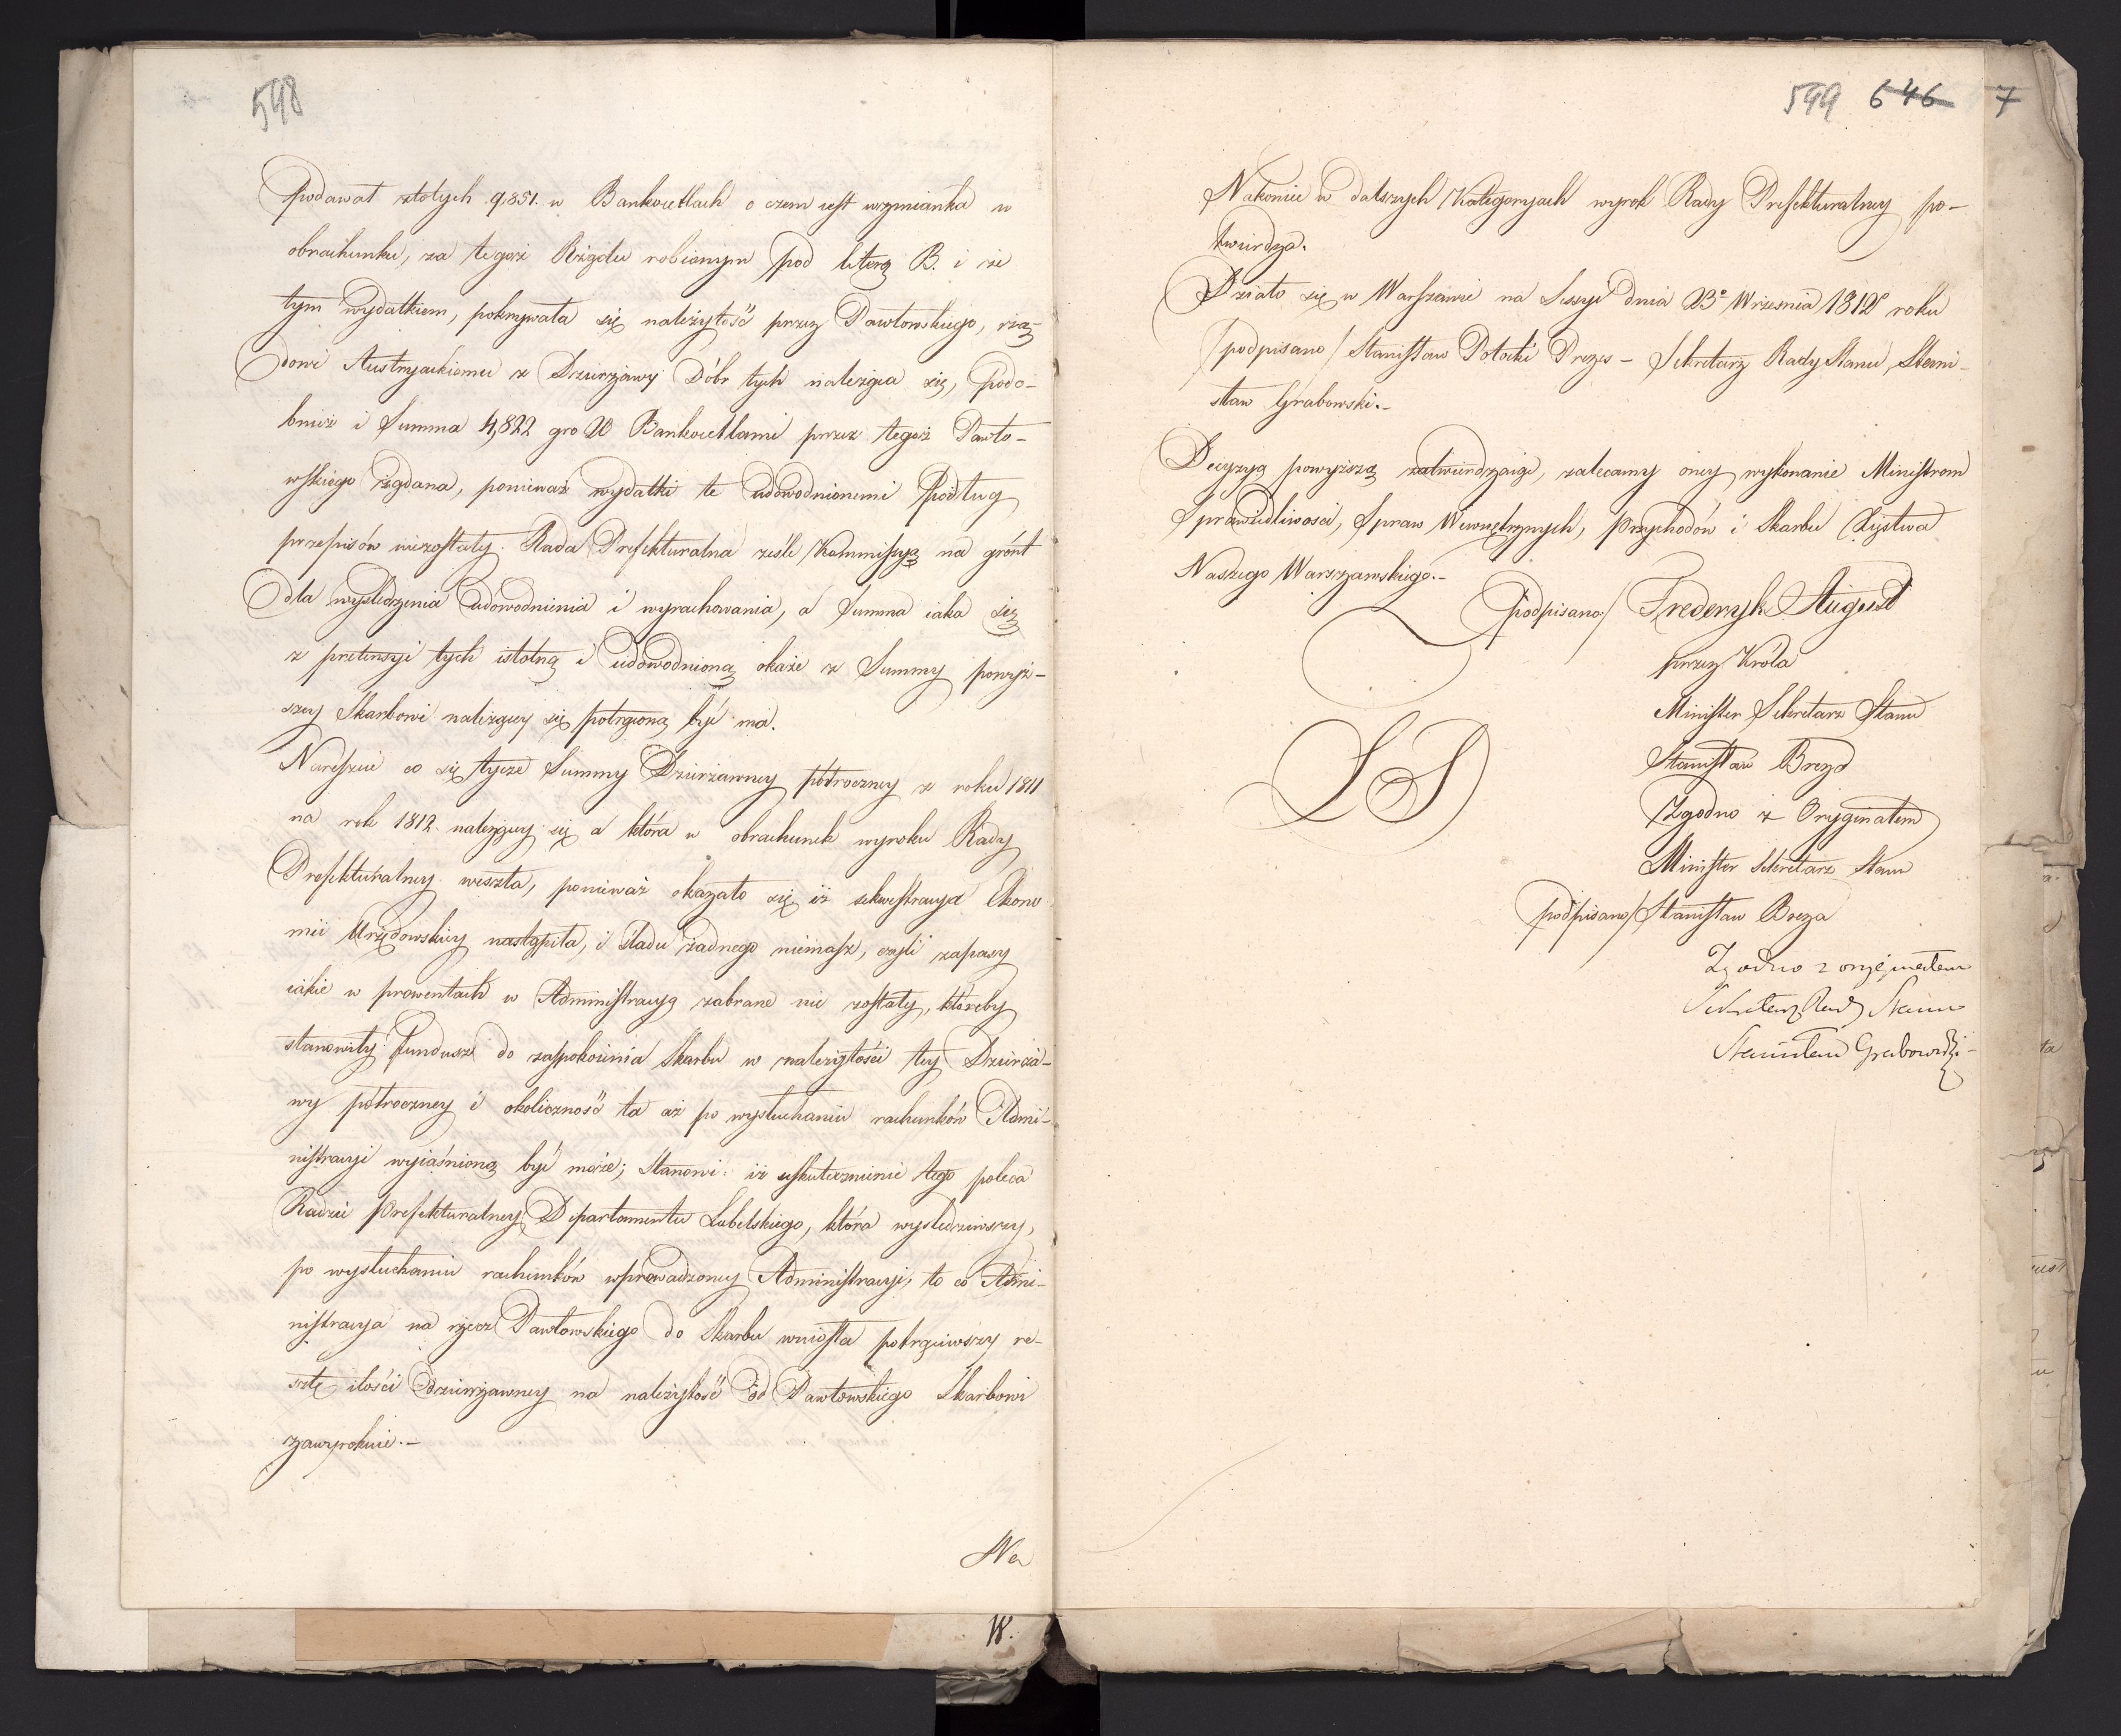 598
Podawał złotych 9,851. w Bankocetlach o czem iest wzmianka w
obrachunku, za tegoż Rządu robionym pod literą B. i że
tym wydatkiem, pokrywała się należytość przez Pawłowskiego, rzą-
dowi Austryackiemu z Dzierżawy Dóbr tych należąca się, Podo-
bnież i Summa 4,822 gro 20 Bankocetlami przez tegoż Pawło-
wskiego żądana, ponieważ wydatki te udowodnionemi Podług
przepisów niezostały. Rada Prefekturalna ześle Kommissyą na grónt
dla wyśledzenia udowodnienia i wyrachowania, a Summa iaka się
z pretensyi tych istotną i udowodnioną okaże z Summy powyż-
szey Skarbowi należącey się potrąconą być má.
Nareszcie co się tycze Summy Dzierżawney półroczney z roku 1811
na rok 1812 należącey się a która w obrachunek wyroku Rady
Prefekturalney weszła, ponieważ okazało się iż sekwestracya Ekono
mii Urzędowskiey nastąpiła, i śladu żadnego niemasz, czyli zapasy
iákie w prowentach w Administracyą zabrane nie zostały, któreby
stanowiły Fundusz do zaspokoienia Skarbu w należytości tey Dzierża-
wy półroczney i okoliczność ta aż po wysłuchaniu rachunków Admi-
nistracyi wyiaśnioną być może; Stanowi: iż uskutecznienie tego poleca
Radzie Prefekturalney Departamentu Lubelskiego, która wyśledziwszy,
po wysłuchaniu rachunków wprowadzoney Administracyi, to co Admi-
nistracya na rzecz Pawłowskiego do Skarbu wniosła potrąciwszy re-
sztę ilości Dzierżawney na należytość od Pawłowskiego Skarbowi
zawyrokuie.-
Na
W.
599 646 7
Nakoniec w dalszych Kategoryach wyrok Rady Prefekturalney po-
twierdza.
Działo się w Warszawie na Sessyi dnia 23º Września 1812 roku
/podpisano/ Stanisław Potocki Prezes - Sekretarz Rady Stanu, Stani-
sław Grabowski.-
Decyzyą powyższą zatwierdzaiąc, zalecamy oney wykonanie Ministrom
Sprawiedliwości, Spraw Wewnętrznych, Przychodów i Skarbu Xięstwa
Naszego Warszawskiego.-
Podpisano/ Frederyk August
przez Króla
Minister Sekretarz Stanu
Stanisław Breza
LS
Zgodno z Oryginałem
Minister Sekretarz Stanu
podpisano/ Stanisław Breza
Zgodno z oryginałem
Sekretarz Rady Stanu
Stanisław Grabowski-